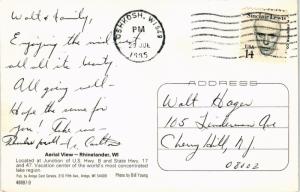 Walt & family,
Enjoying the mid west
all all its beauty.
All going well -
Hope the same for
you. Take care -
OSHKOSH, WI 549
PM
29 JUL
1995
Sinclair Lewis
USA 14
ADDRESS
Walt Hagen
105 Linderman Ave
Cherry Hill N.J.
08002
Aerial View—Rhinelander, WI
Located at Junction of U.S. Hwy. 8 and State Hws. 17
and 47. Vacation center of the world's most concentrated
lake region.
Pub. by Avego Card Service, 315 Fifth Ave., Antigo, WI 54409
Photo by Bill Young